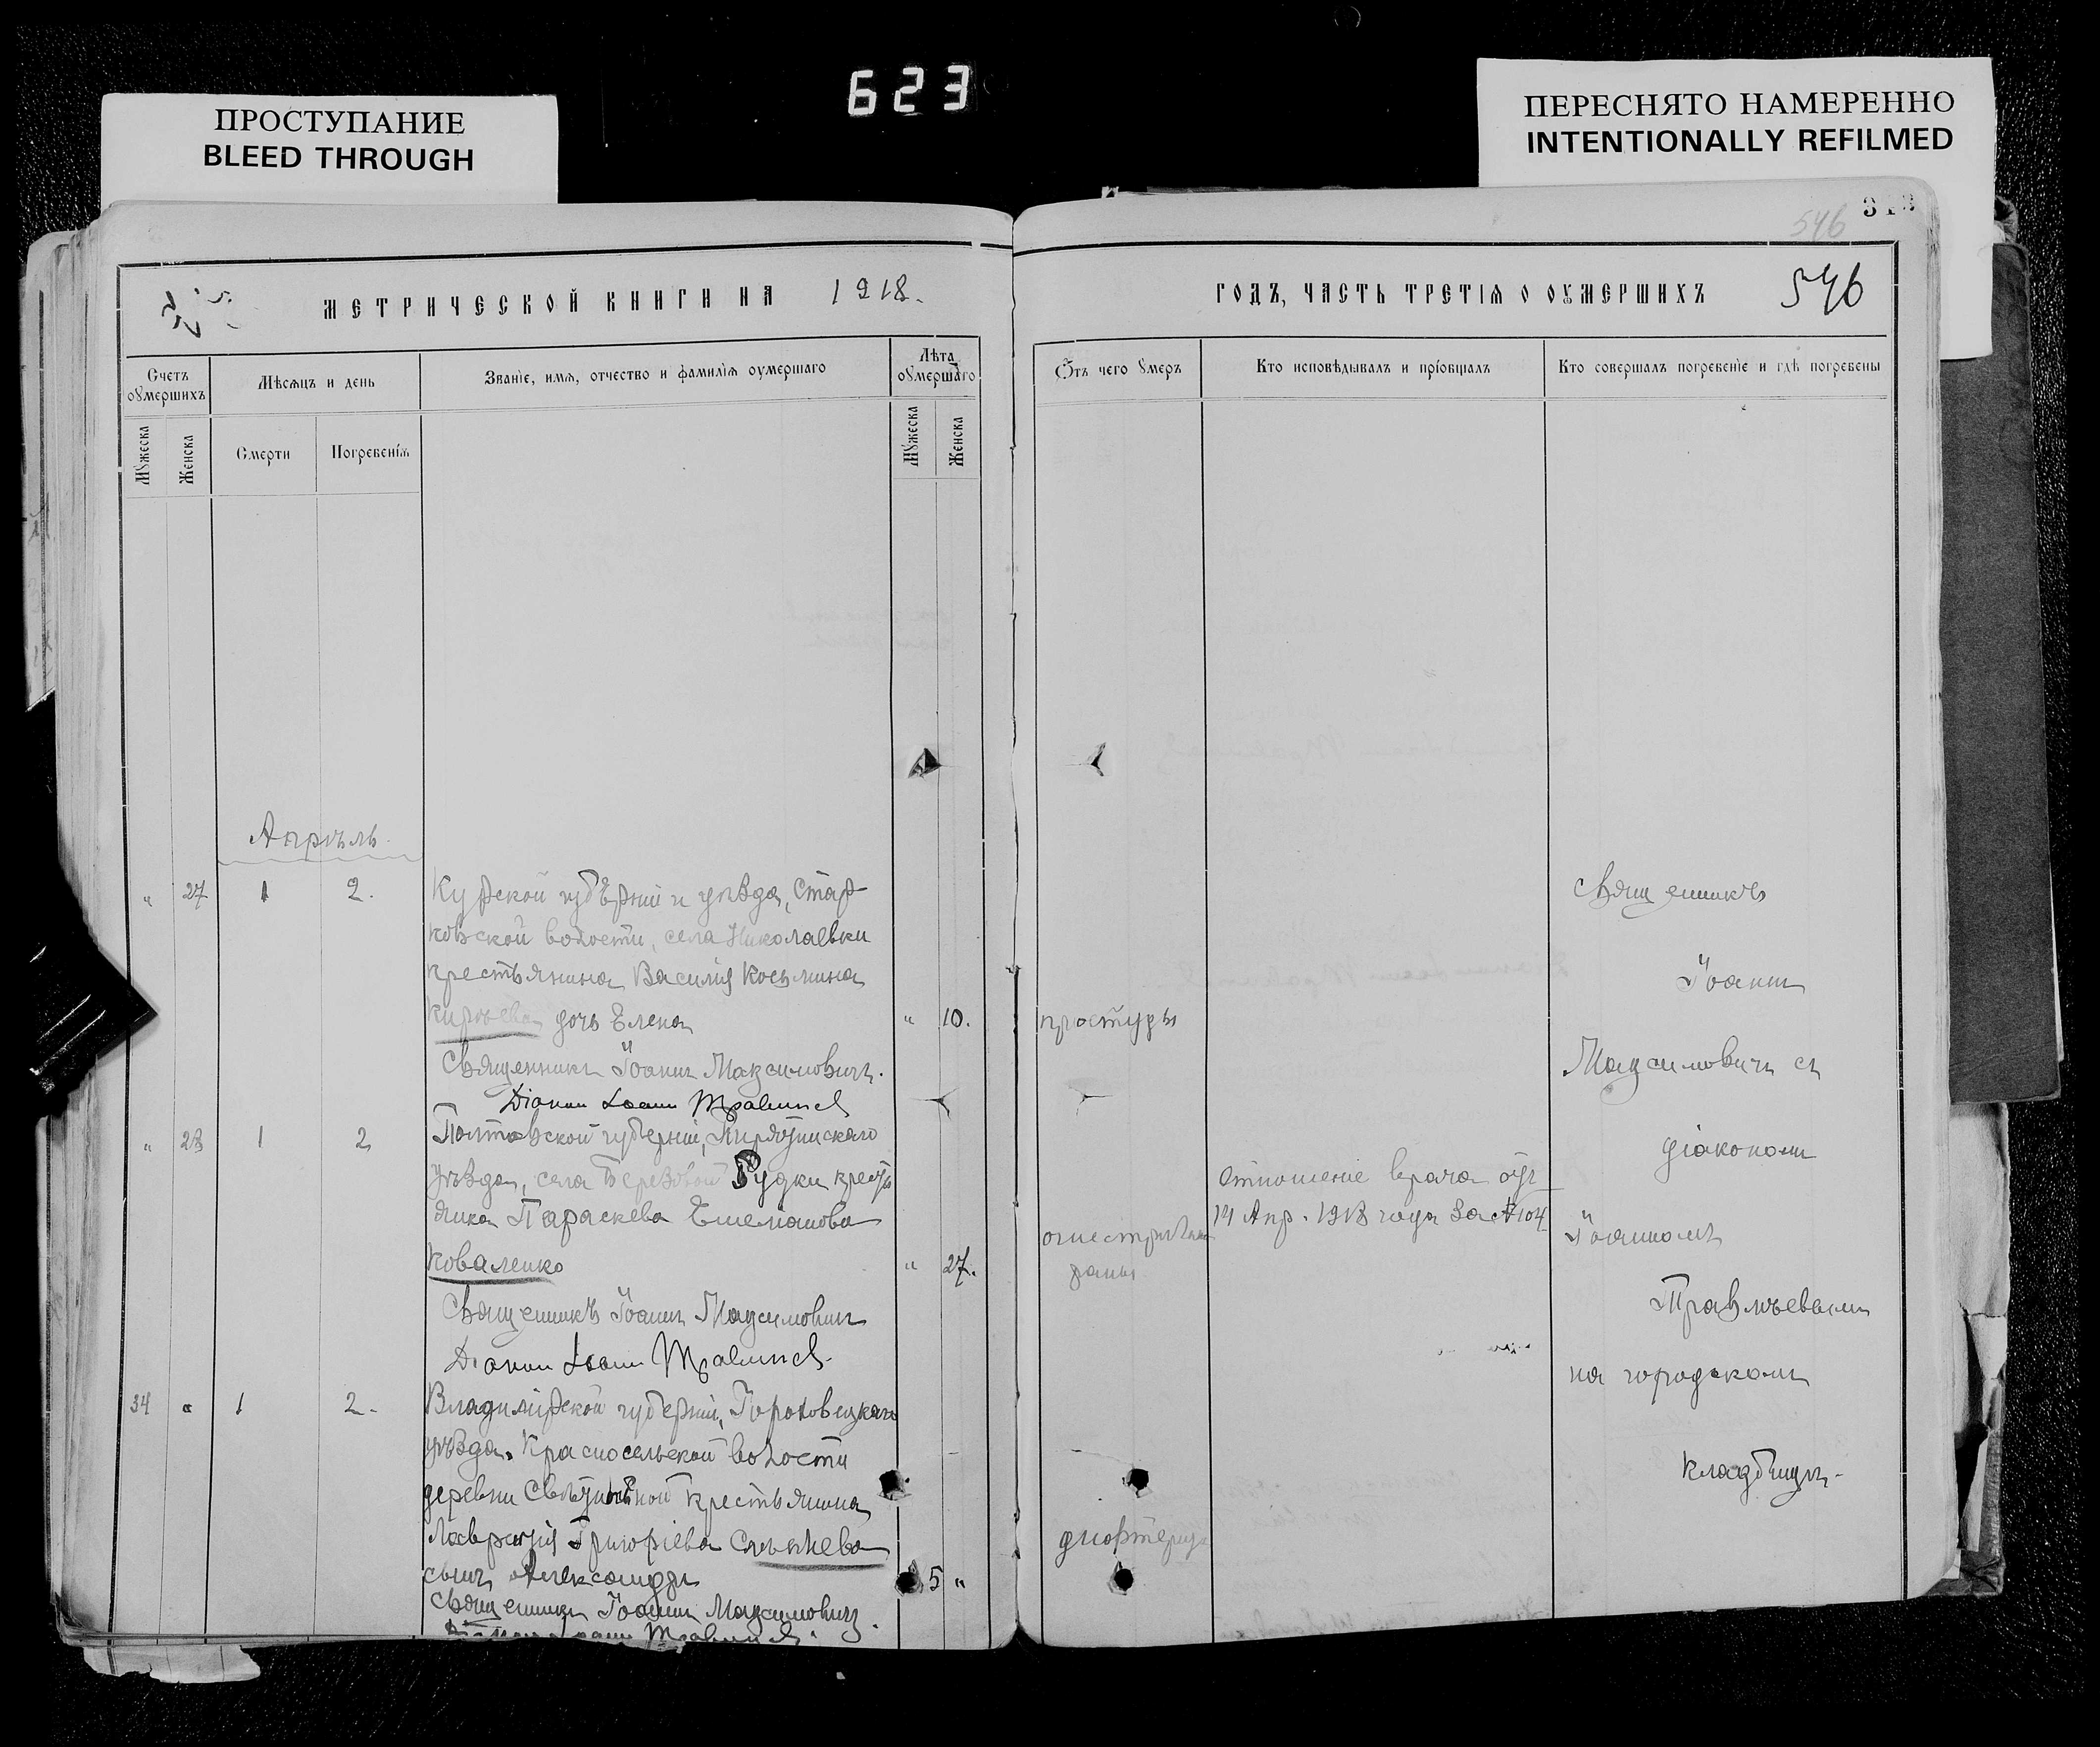 623
ПРОСТУПАНИЕ
BLEED THROUGH
ПЕРЕСНЯТО НАМЕРЕННО
INTENTIONALLY REFILMED
546
МЕТРИЧЕСКОЙ КНИГИ НА 1918.
Счетъ оумершихъ
Мѣсяцъ и день
Званіе, имя, отчество и фамилія оумершаго
Лѣта оумершаго
Мужеска
Женска
Смерти
Погребенія
Мужеска
Женска
Апрѣль
„ 27 1 2.
Курской губерніи и уѣзда, Стар-
ковской волости, села Николаевки
крестьянина Василія Косьмина
Кирѣева дочь Елена „ 10.
Священникъ Іоаннъ Максимовичъ.
Діаконъ Іоаннъ
„ 28 1 2
Полтавской губерніи, Пирятинскаго
уѣзда, села Березовой Рудки кресть
янка Параскева Емелianова
Коваленко „ 27.
Священникъ Іоаннъ Максимовичъ
Діаконъ Іоаннъ
34 „ 1 2.
Владимірской губерніи, Гороховецкаго
уѣзда, Красносельской волости
деревни крестьянина
Лаврентія Григоріева
сынъ Александръ 5 „
Священникъ Іоаннъ Максимовичъ.
ГОДЪ, ЧАСТЬ ТРЕТІЯ О ОУМЕРШИХЪ 546
Отъ чего умеръ
Кто исповѣдывалъ и пріобщалъ
Кто совершалъ погребеніе и гдѣ погребены
простуды
огнестрѣльной
раны
дифтерита
Отношеніе врача отъ
14 Апр. 1918 года за № 104
Священникъ
Іоаннъ
Максимовичъ съ
діакономъ
Іоанномъ
Травлѣевымъ
на городскомъ
кладбищѣ.